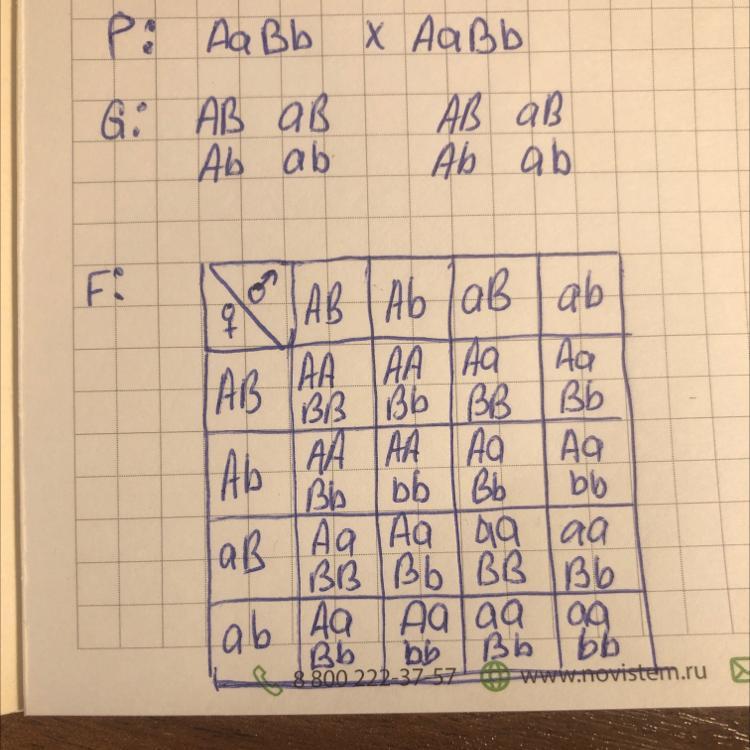 P: AaBb x AaBb
G: AB aB AB aB
Ab ab Ab ab
F: ♀ ♂ AB Ab aB ab
AB AA AA Aa Aa
BB Bb BB Bb
Ab AA AA Aa Aa
Bb bb Bb bb
aB Aa Aa aa aa
BB Bb BB Bb
ab Aa Aa aa aa
Bb bb Bb bb
8 800 222-37-57 www.novistem.ru